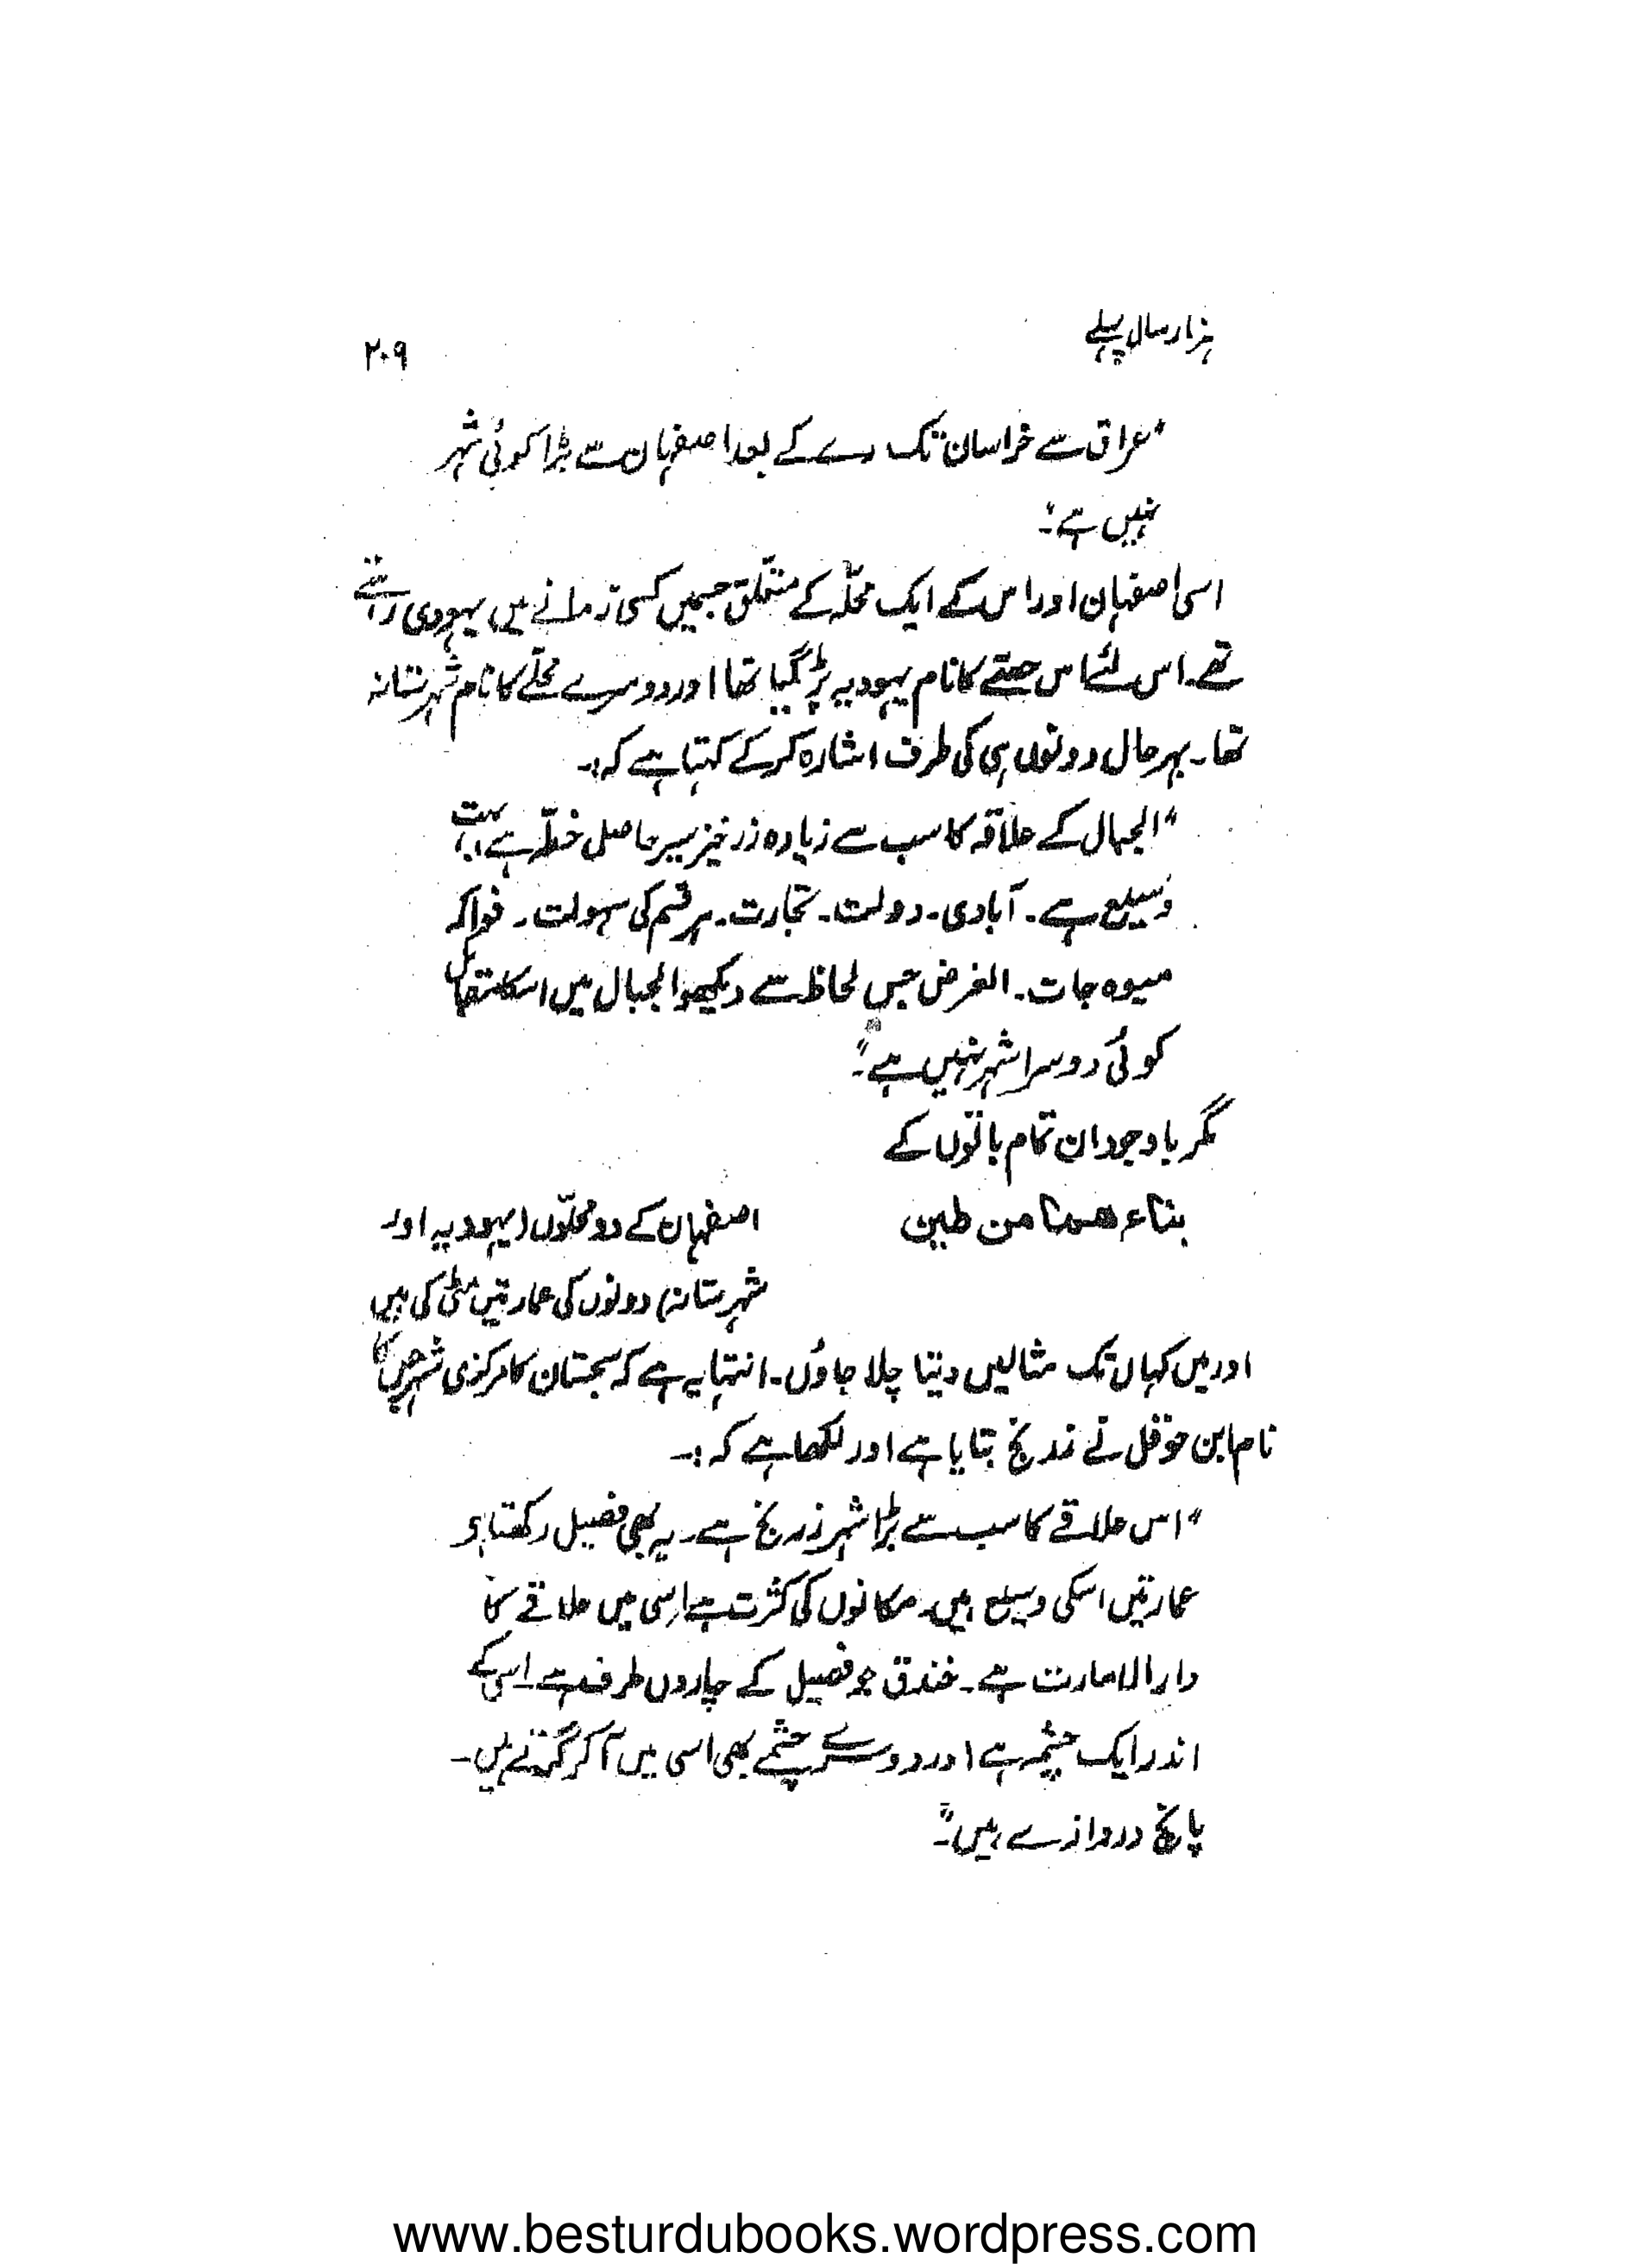 ہزار سال پہلے
۲۰۹
"عراق سے خراسان تک رے کے بعد اصفہان سے بڑا کوئی شہر
نہیں ہے"۔
اسی اصفہان اور اس کے ایک محلّہ کے متعلق جسمیں کسی زمانے میں یہودی رہتے
تھے۔ اس لئے اس حصّے کا نام یہودیہ پڑ گیا تھا اور دوسرے محلّے کا نام شہرستانہ
تھا۔ بہرحال دونوں ہی کی طرف اشارہ کرکے کہتا ہے کہ:۔
"الجبال کے علاقہ کا سب سے زیادہ زرخیز سیرحاصل خطّہ ہے، بہت
وسیع ہے۔ آبادی۔ دولت۔ تجارت۔ ہر قسم کی سہولت۔ فواکہ
میوہ جات۔ الغرض جس لحاظ سے دیکھو الجبال میں اسکا مقابل
کوئی دوسرا شہر نہیں ہے"۔
مگر باوجود ان تمام باتوں کے
بناء هما من طین
اصفہان کے دو محلّوں (یہودیہ اور
شہرستانہ) دونوں کی عمارتیں مٹی کی ہیں
اور میں کہاں تک مثالیں دیتا چلا جاؤں۔ انتہا یہ ہے کہ سجستان کا مرکزی شہر جس کا
نام ابن حوقل نے زرنج بتایا ہے اور لکھا ہے کہ:۔
"اس علاقے کا سب سے بڑا شہر زرنج ہے۔ یہ بھی فصیل رکھتا ہے
عمارتیں اسکی وسیع ہیں۔ مکانوں کی کثرت ہے اسی میں علاقے کا
دارالامارت ہے۔ خندق جو فصیل کے چاروں طرف ہے اسی کے
اندر ایک چشمہ ہے اور دوسرے چشمے بھی اسی میں آکر گرتے ہیں۔
پانچ دروازے ہیں"۔
www.besturdubooks.wordpress.com